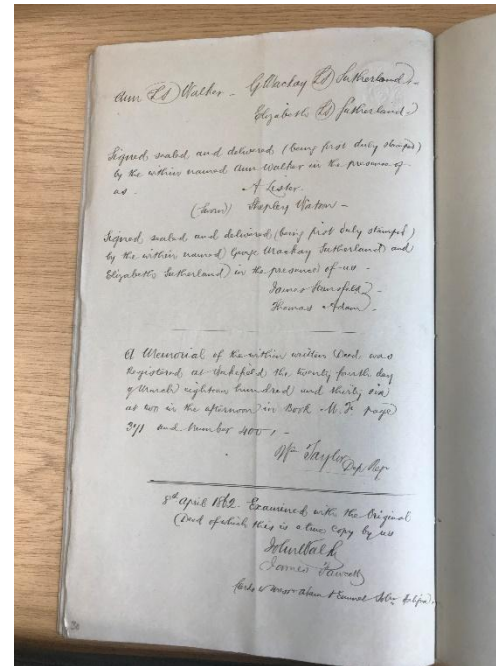 Ann (LS) Walker - G Mackay (LS) Sutherland -
Elizabeth (LS) Sutherland -
Signed sealed and delivered (being first duly stamped)
by the within named Ann Walker in the presence of
us -
A Lister
Shepley Watson -
Signed, sealed and delivered (being first duly stamped)
by the within named George Mackay Sutherland and
Elizabeth Sutherland in the presence of us -
James Stansfeld -
Thomas Adam -
A Memorial of the within written Deed was
Registered at Wakefield the twenty fourth day
of March eighteen hundred and thirty six
at two in the afternoon in Book M.F. page
371 and Number 400 -
Wm Taylor Dep Regr
8th April 1862. Examined with the Original
Deed of which this is a true Copy by us
John Walk
James Fawcett
Clerks to Messrs Adam & Emmet Solrs Halifax